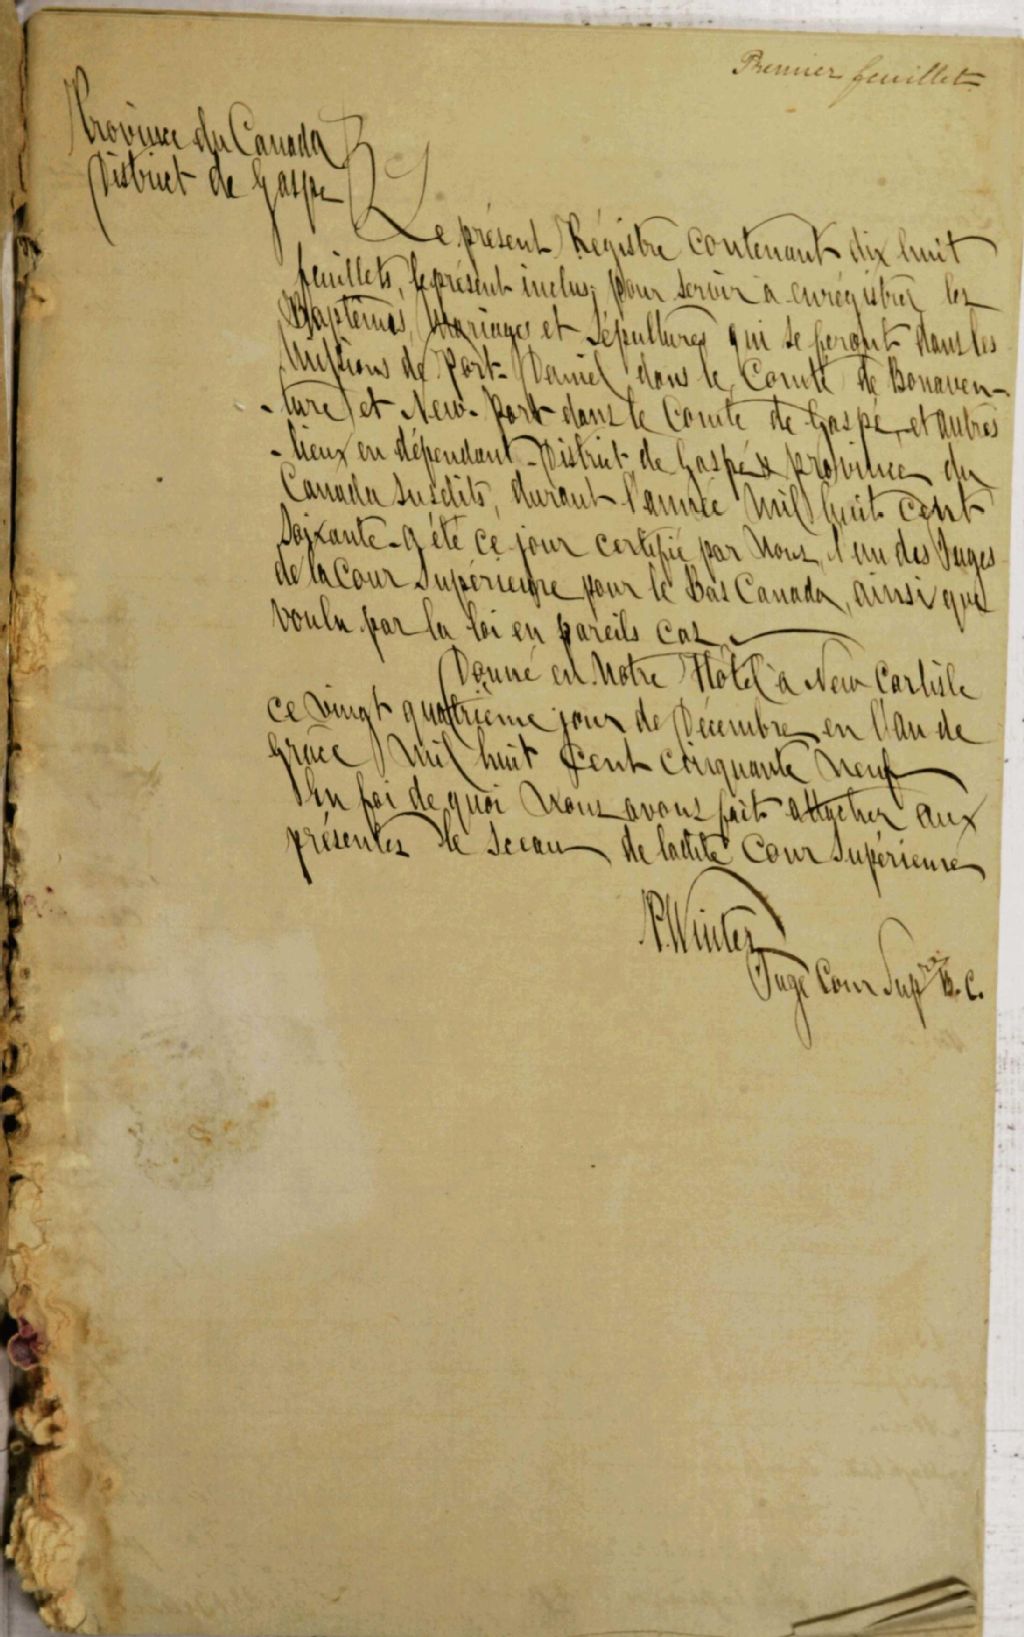 Premier feuillet
Province du Canada
District de Gaspe
Le présent Régistre contenant dix huit
feuillets, le présent inclus; pour servir à enrégistrer les
Baptêmes, Mariages et Sépultures qui se feront dans les
Missions de Port-Daniel dans le Comté de Bonaven-
-ture et New-Port dans le Comté de Gaspé, et autres
-lieux en dépendant-District de Gaspé & province du
Canada susdits, durant l'année Mil huit cent
Soixante-a été ce jour certifié par Nous, l'un des Juges
de la Cour Supérieure pour le Bas Canada, ainsi que
voulu par la loi en pareils cas
Donné en Notre Hôtel à New Carlisle
ce vingt quatrieme jour de Décembre en l'an de
Grâce Mil huit Cent cinquante Neuf
En foi de quoi Nous avons fait attacher aux
présentes le sceau de ladite Cour Supérieure
P. Winter
Juge Cour Supre B.C.